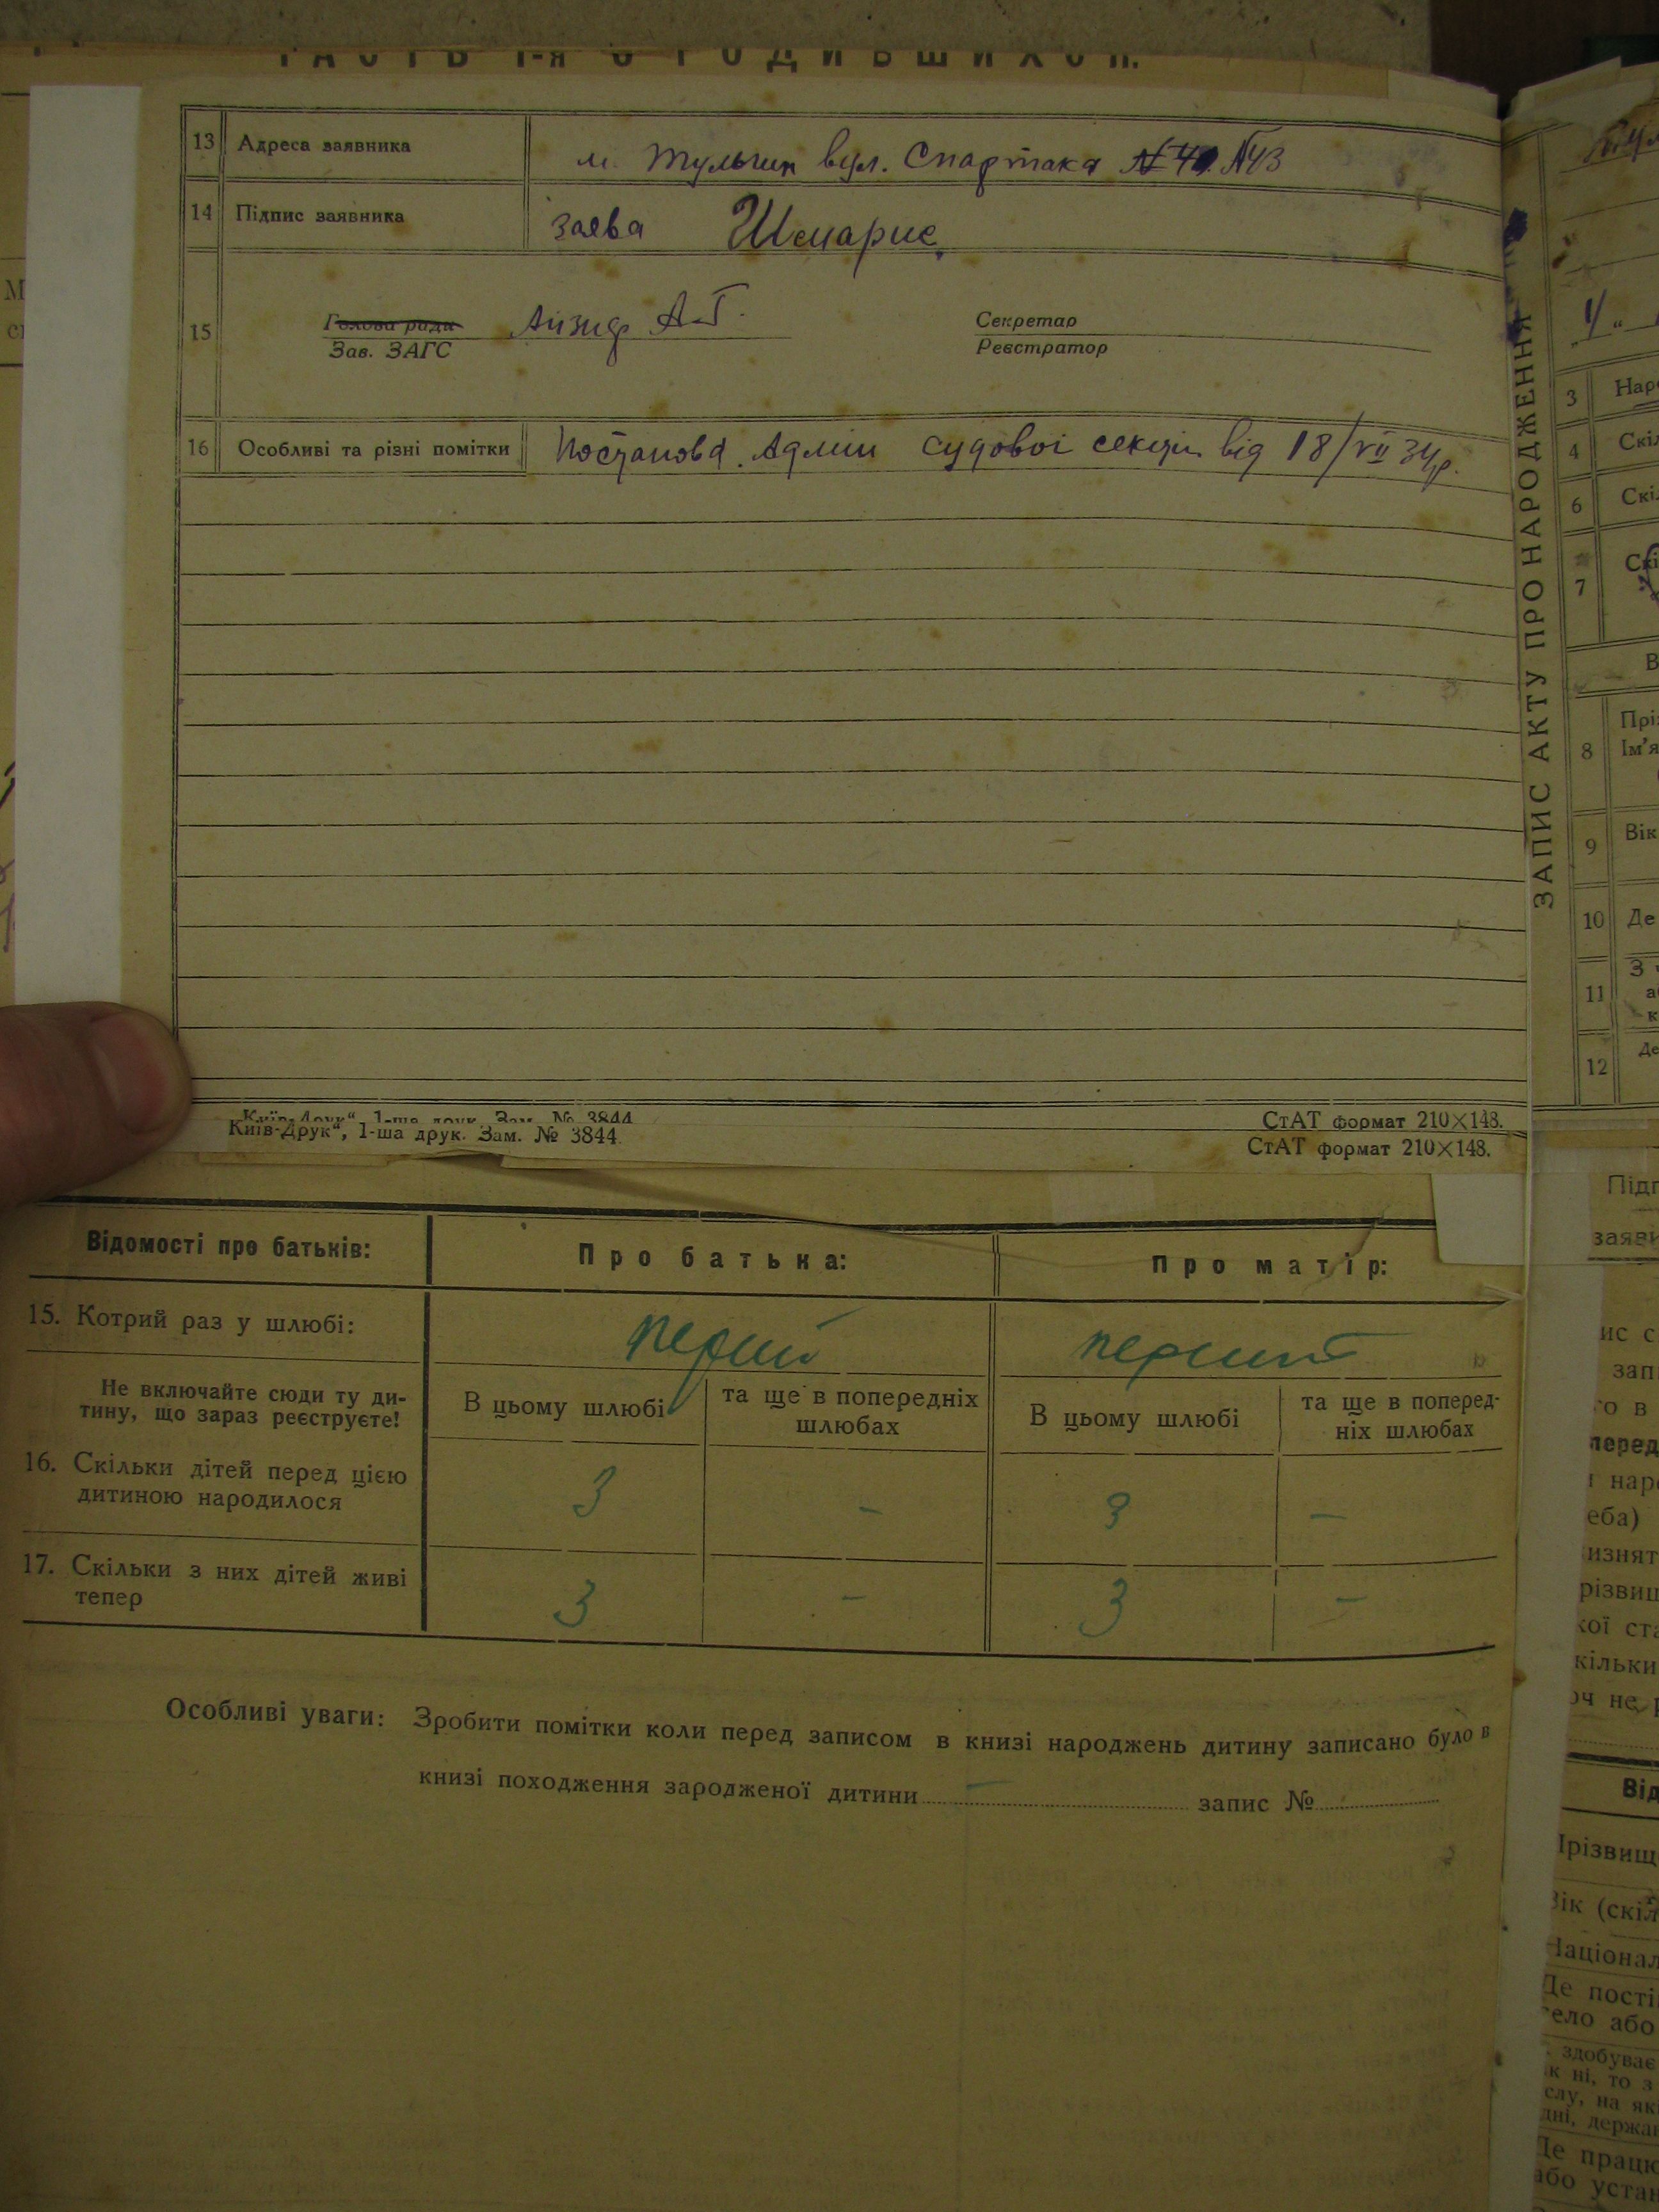 ЧАСТЬ I-я О РОДИВШИХСЯ.
13 Адреса заявника м. Тульчин вул. Спартака №43
14 Підпис заявника заява
15 Голова ради
Зав. ЗАГС
Секретар
Реєстратор
16 Особливі та різні помітки Постанова Адмін судової секції від 18/VII 34р.
„Київ-Друк“, 1-ша друк. Зам. № 3844
СтАТ формат 210×148.
„Київ-Друк“, 1-ша друк. Зам. № 3844
СтАТ формат 210×148.
Відомості про батьків: Про батька: Про матір:
15. Котрий раз у шлюбі: перший перший
Не включайте сюди ту ди-
тину, що зараз реєструєте!
В цьому шлюбі
та ще в попередніх
шлюбах
В цьому шлюбі
та ще в поперед-
ніх шлюбах
16. Скільки дітей перед цією
дитиною народилося
3 - 3 -
17. Скільки з них дітей живі
тепер
3 - 3 -
Особливі уваги: Зробити помітки коли перед записом в книзі народжень дитину записано було в
книзі походження зародженої дитини — запис №
ЗАПИС АКТУ ПРО НАРОДЖЕННЯ
3
4
6
7
8
Ім'я
9 Вік
10 Де
11 З
12